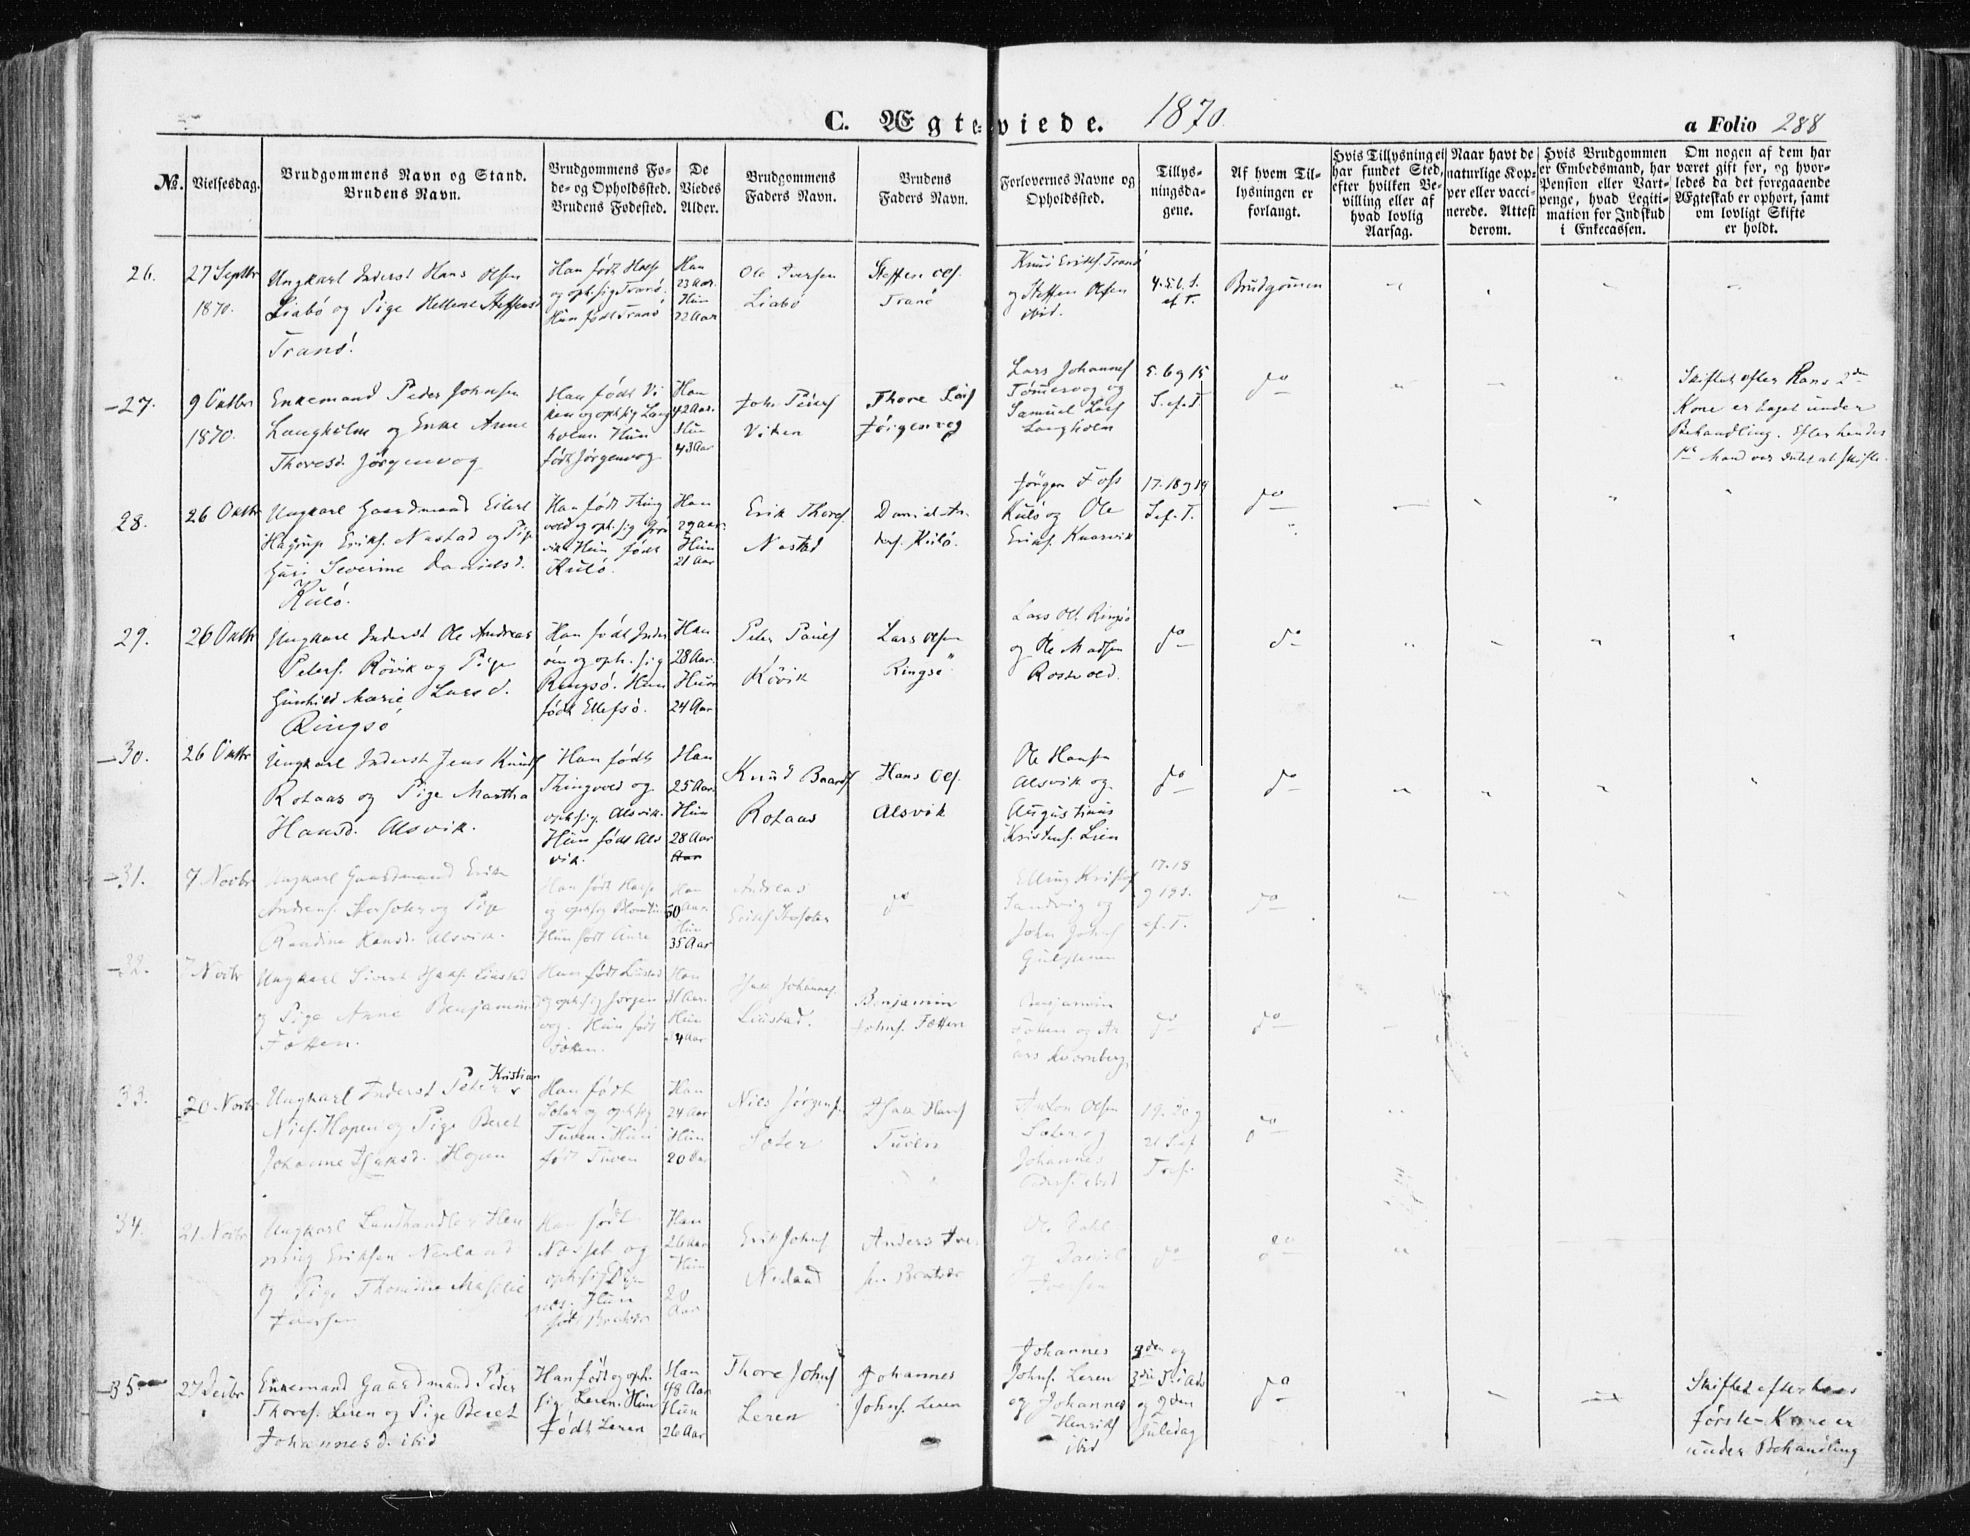 C. Ægteviede. 1870.
a Folio 288
No.
Vielsesdag.
Brudgommens Navn og Stand.
Brudens Navn.
Brudgommens Fø-
de- og Opholdssted.
Brudens Fødested.
De
Viedes
Alder.
Brudgommens
Faders Navn.
Brudens
Faders Navn.
Forlovernes Navne og
Opholdssted.
Tillys-
ningsda-
gene.
Af hvem Til-
lysningen er
forlangt.
Hvis Tillysning ei
har fundet Sted,
efter hvilken Be-
villing eller af
hvad lovlig
Aarsag.
Naar havt de
naturlige Kop-
per eller vacci-
nerede. Attest
derom.
Hvis Brudgommen
er Embedsmand, har
Pension eller Vart-
penge, hvad Legiti-
mation for Indskud
i Enkecassen.
Om nogen af dem har
været gift før, og hvor-
ledes da det foregaaende
Ægteskab er ophørt, samt
om lovligt Skifte
er holdt.
26.
27 Septbr
1870.
Ungkarl Inderst Hans Olsen
Liabø og Pige Hellene Steffensd
Tranø.
Han født
og oph. sig Tranø.
Hun født Tranø
Han
23 Aar.
Hun
22 Aar
Ole Iversen
Liabø
Steffen Ols.
Tranø
Knud Eriks. Tranø
og Steffen Olsen
ibid.
4. 5. 6. S.
ef. T.
Brudgommen
27.
9 Oktbr
1870.
Enkemand Peder Johnsen
Langholm og Enke Anne
Thoresd. Jørgenvog
Han født Vi
ken og oph. sig Lang
holm. Hun
født Jørgenvog
Han
42 Aar.
Hun
43 Aar
John Peders
Viken
Thore Lars
Jørgenvog
Lars Johannes
Tømmervog og
Samuel Lars
Langholm
5. 6 og 15
S. ef. T.
do
Skiftet efter Hans 2den
Kone er taget under
Behandling. Efter hendes
1ste Mand var Intet at skifte.
28.
26 Oktbr
Ungkarl Gaardmand Eilert
Hagrup Eriks. Nastad og Pige
Guri Severine Danielsd.
Kulø.
Han født Thing
vold og oph. sig
vik. Hun født
Kulø.
Han
29 aar.
Hun
21 Aar
Erik Thores.
Nastad
Daniel An
ders. Kulø.
Jörgen Foss
Kulø og Ole
Eriks. Knarvik
17. 18 og 19
S. ef. T.
do
29.
26 Oktbr
Ungkarl Inderst Ole Andreas
Peters. Rövik og Pige
Gunhild Marie Larsd.
Ringsø
Han født Inder
øen og oph. sig
Ringsø. Hun
født Ellefsø.
Han
28 Aar.
Hun
24 Aar
Peter Pauls
Rövik
Lars Olsen
Ringsø
Lars Ols. Ringsø
og Ole Madsen
Rosvold.
do
do
30.
26 Oktbr
Ungkarl Inderst Jens Knuds
Rotaas og Pige Martha
Hansd. Alsvik.
Han født
Thingvold og
oph. sig Alsvik.
Hun født Als
vik.
Han
25 Aar.
Hun
28 Aar
Aar
Knud Baards
Rotaas
Hans Ols.
Alsvik
Ole Hansen
Alsvik og
Augustinus
Kristens. Lien
do
do
31.
7 Novbr
Ungkarl Gaardmand Erik
Andreas. Storsøter og Pige
Randine Hansd. Alsvik.
Han født
og oph. sig
Hun født Aure
Han
50 Aar.
Hun
35 Aar
Andreas
Eriks Storsøter
do
Elling Kristofs
Sandvig og
John Johns
17. 18
og 19 S.
ef. T.
do
32.
7 Novbr
Ungkarl Sivert Isaks. Linstad
og Pige Anne Benjamins
Fætten.
Han født Linstad
og oph. sig Jørgen
vog. Hun født
Fætten.
Han
Aar.
Hun
Aar
Isak Johannes.
Linstad.
Benjamin
Johns. Fætten
Benjamin
Fætten og An
ders Kvernberg
do
do
33.
20 Novbr
Ungkarl Inderst Peter Kristian
Niels. Hopen og Pige Beret
Johanne Isaksd. Hopen
Han født
Søter og oph. sig
Tuven. Hun
født Tuven
Han
24 Aar
Hun
20 Aar
Niels Jørgens
Søter
Isak Hans
Tuven
Anton Olsen
Søter og
Johannes
Peders. ibid
19. 20 og
21 S. ef.
Tref.
do
34.
21 Novbr
Ungkarl Landhandler Hen
ning Eriksen Nerland
og Pige Thomine
Iversen
Han født
Næsset og
oph. sig
næs. Hun
født Bratvær
Han
26 Aar
Hun
20
Aar
Erik Johns
Nerland
Anders Iver
sen Bratvær
Ole Dahl
og Daniel
Iversen
do
do
35
27 Decbr
Enkemand Gaardmand Peder
Thores. Leren og Pige Beret
Johannesd. ibid
Han født og oph.
sig Leren. Hun
født Leren
Han
48 Aar
Hun
26 Aar
Thore Johns
Leren
Johannes
Johns. Leren
Johannes
Johns. Leren
og Johannes
Henriks
ibid
2den og
3die S. i Adv
og 2den
Juledag
do
Skiftet efter hans
første Kone er
under Behandling